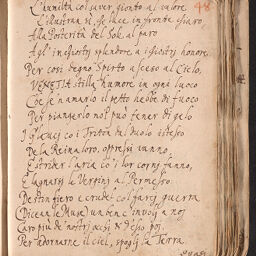 L'humiltà col saver, gionto al valore 48
L'illustran sì, che luce in fronte chiaro
Alla Posterità del Sol al paro
Agl'inchiostri splendore a i giostri honore.
Per così degno Spirto asceso al Cielo,
VENETIA stilla humore in ogni luoco
Che se n'amario il petto hebbe di fuoco
Per piangerlo non può tener di gelo
I Glauchi co i Tritoni dal duolo istesso
De la Reina loro, oppressi vanno,
E strider l'aria co i lor corni fanno,
E lagnarsi le Vergini al Permesso
Destin fiero e crudel col far guerra
Dicean le Muse un ben c'invogli a noi
Caro più de nostri occhi & desso poi,
Per adornarne il ciel, spogli la Terra.